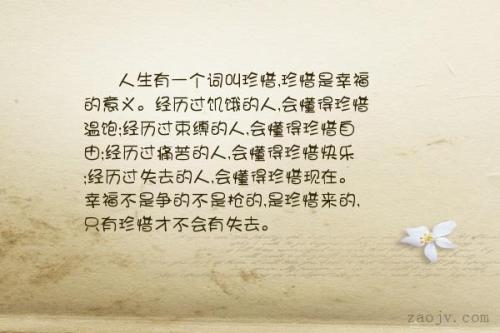 人生有一个词叫珍惜,珍惜是幸福
的意义。经历过饥饿的人,会懂得珍惜
温饱;经历过束缚的人,会懂得珍惜自
由;经历过痛苦的人,会懂得珍惜快乐
;经历过失去的人,会懂得珍惜现在。
幸福不是争的不是抢的,是珍惜来的,
只有珍惜才不会有失去。
zaojv.com